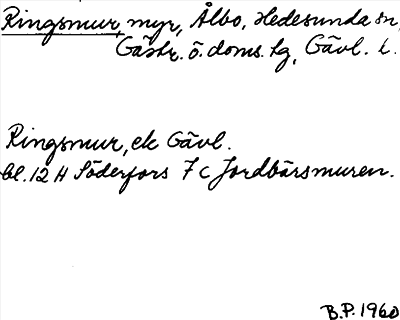 Ringsmur, myr, Ålbo, Hedesunda sn,
Gästr. ö. doms. tg, Gävl. l.
Ringsmur, ek Gävl.
bl. 12 H Söderfors 7 c Jordbärsmuren.
B.P. 1960